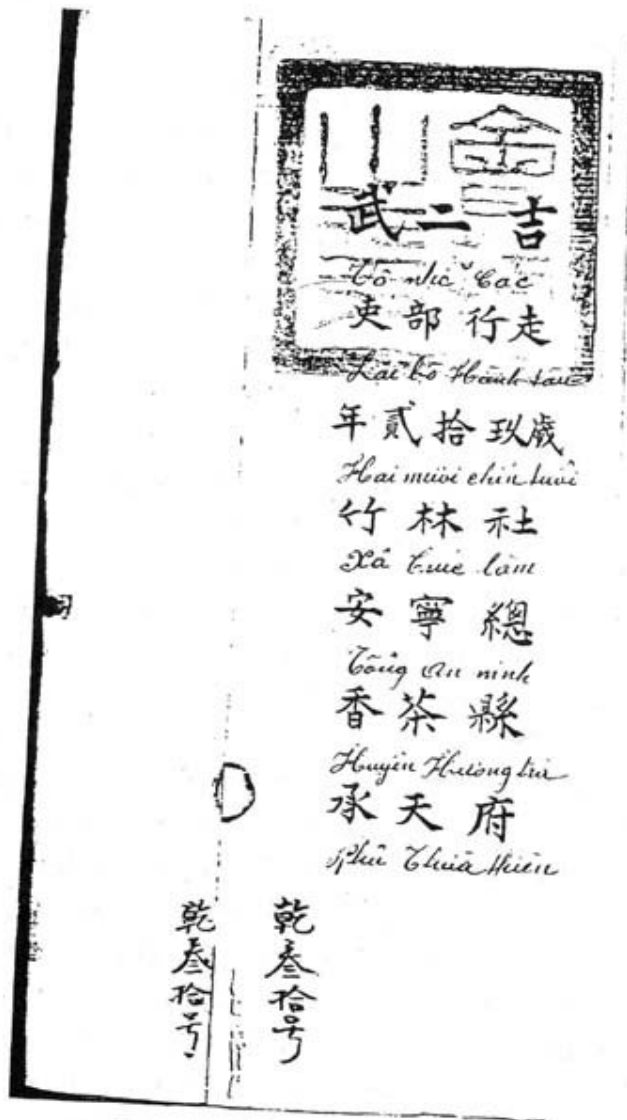 武二吉
Võ nhị Cac
吏部行走
Lại bộ Hành tẩu
年貳拾玖歲
Hai mươi chín tuổi
竹林社
Xã Trúc lâm
安寧總
Tổng An ninh
香茶縣
Huyện Hương trà
承天府
Phủ Thừa thiên
乾叄拾号
乾叄拾号